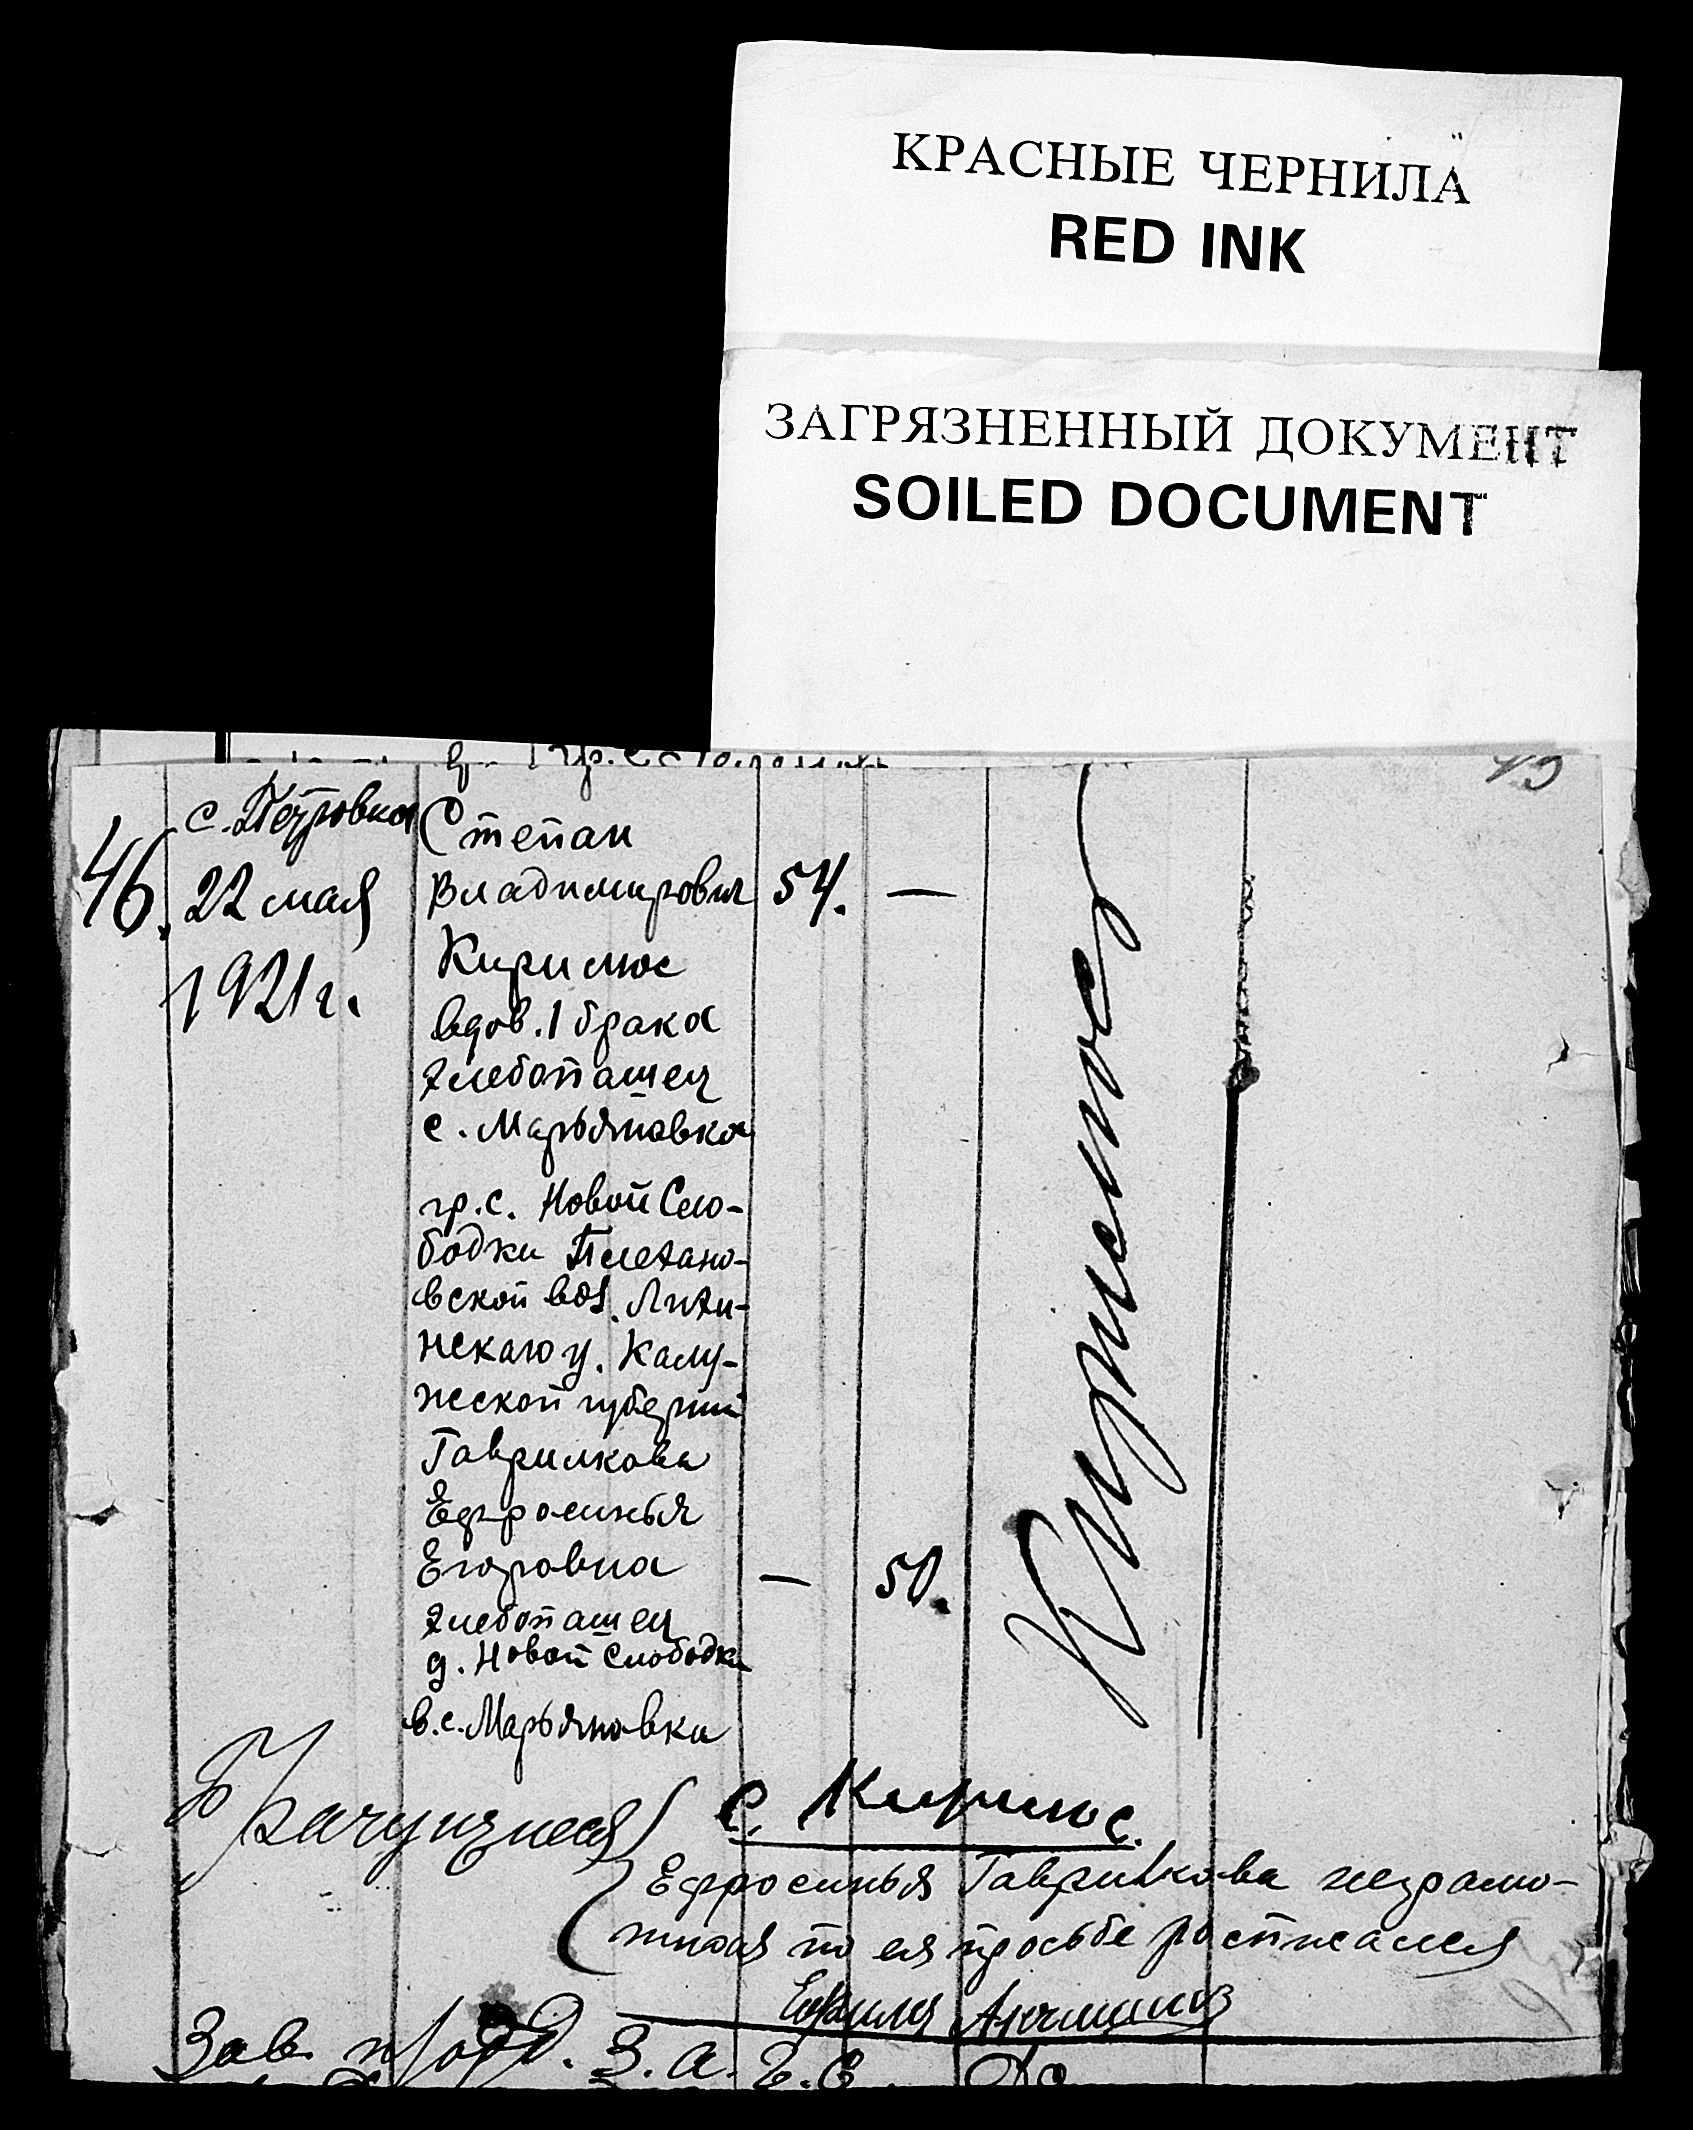 КРАСНЫЕ ЧЕРНИЛА
RED INK
ЗАГРЯЗНЕННЫЙ ДОКУМЕНТ
SOILED DOCUMENT
46.
с. Петровка
22 мая
1921 г.
Степан
Владимирович
Кирилюс
вдов. 1 брака
хлебопашец
с. Марьяновка
54. —
гр. с. Новой Сло-
бодки Плехано-
вской вол. Лихи-
нскаго у. Калу-
жской губернии
Гаврилкова
Ефросинья
Егоровна
хлебопашец
д. Новой Слободки
в. с. Марьяновка
— 50.
Кирилюс
Брачущиеся
С. Кирилюс.
Ефросинья Гаврилкова неграмо-
тная по ея просьбе росписался
Зав. п/отд. З.А.Г.С.